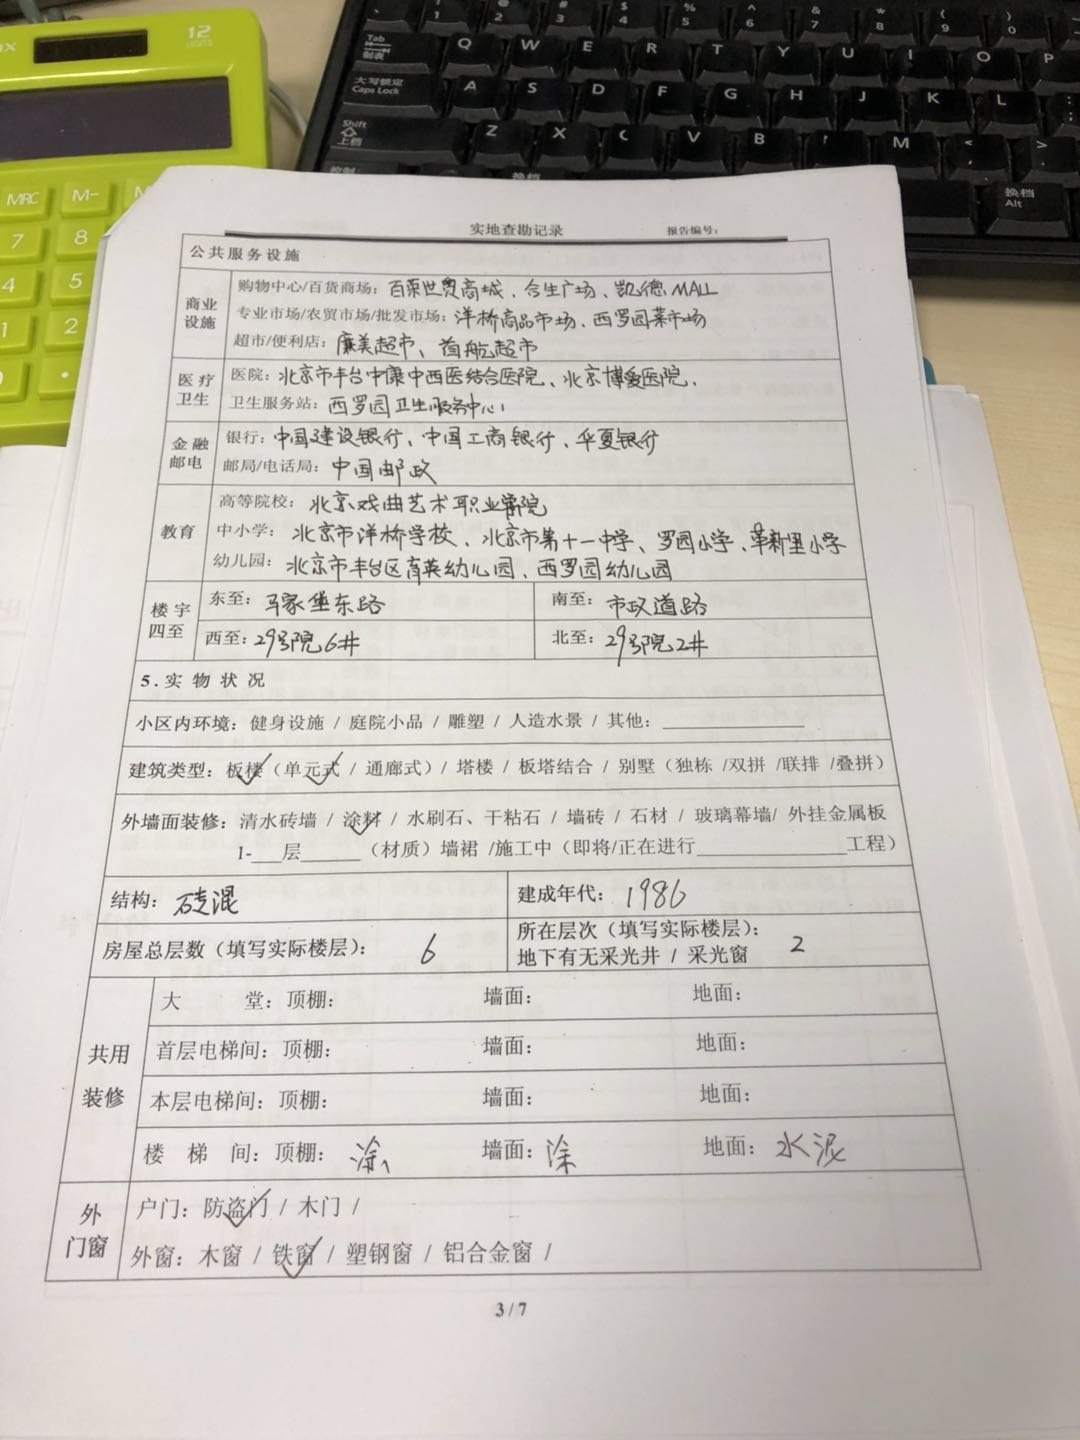 12
DIGITS
MRC
M-
7
8
4
5
1
2
0
Tab
制表
Q W E R T Y U I O P
大写锁定
Caps Lock
A S D F G H J K L
Shift
上档
Z X C V B N M
换档
换档
Alt
实地查勘记录 报告编号:
公共服务设施
商业设施
购物中心/百货商场: 百荣世贸商城、合生广场、凯德MALL
专业市场/农贸市场/批发市场: 洋桥商品市场、西罗园菜市场
超市/便利店: 廉美超市、首航超市
医疗卫生
医院: 北京市丰台中康中西医结合医院、北京博爱医院、
卫生服务站: 西罗园卫生服务中心
金融邮电
银行: 中国建设银行、中国工商银行、华夏银行
邮局/电话局: 中国邮政
教育
高等院校: 北京戏曲艺术职业学院
中小学: 北京市洋桥学校、北京市第十一中学、罗园小学、革新里小学
幼儿园: 北京市丰台区育英幼儿园、西罗园幼儿园
楼宇四至
东至: 马家堡东路 南至: 市政道路
西至: 29号院6# 北至: 29号院2#
5.实物状况
小区内环境: 健身设施 / 庭院小品 / 雕塑 / 人造水景 / 其他:
建筑类型: 板楼 (单元式 / 通廊式) / 塔楼 / 板塔结合 / 别墅 (独栋 /双拼 /联排 /叠拼)
外墙面装修: 清水砖墙 / 涂料 / 水刷石、干粘石 / 墙砖 / 石材 / 玻璃幕墙/ 外挂金属板
1-___层______ (材质) 墙裙 /施工中 (即将/正在进行_______________工程)
结构: 砖混 建成年代: 1986
房屋总层数 (填写实际楼层): 6 所在层次 (填写实际楼层): 2
地下有无采光井 / 采光窗
共用装修
大 堂: 顶棚: 墙面: 地面:
首层电梯间: 顶棚: 墙面: 地面:
本层电梯间: 顶棚: 墙面: 地面:
楼 梯 间: 顶棚: 涂 墙面: 涂 地面: 水泥
外门窗
户门: 防盗门 / 木门 /
外窗: 木窗 / 铁窗 / 塑钢窗 / 铝合金窗 /
3 / 7